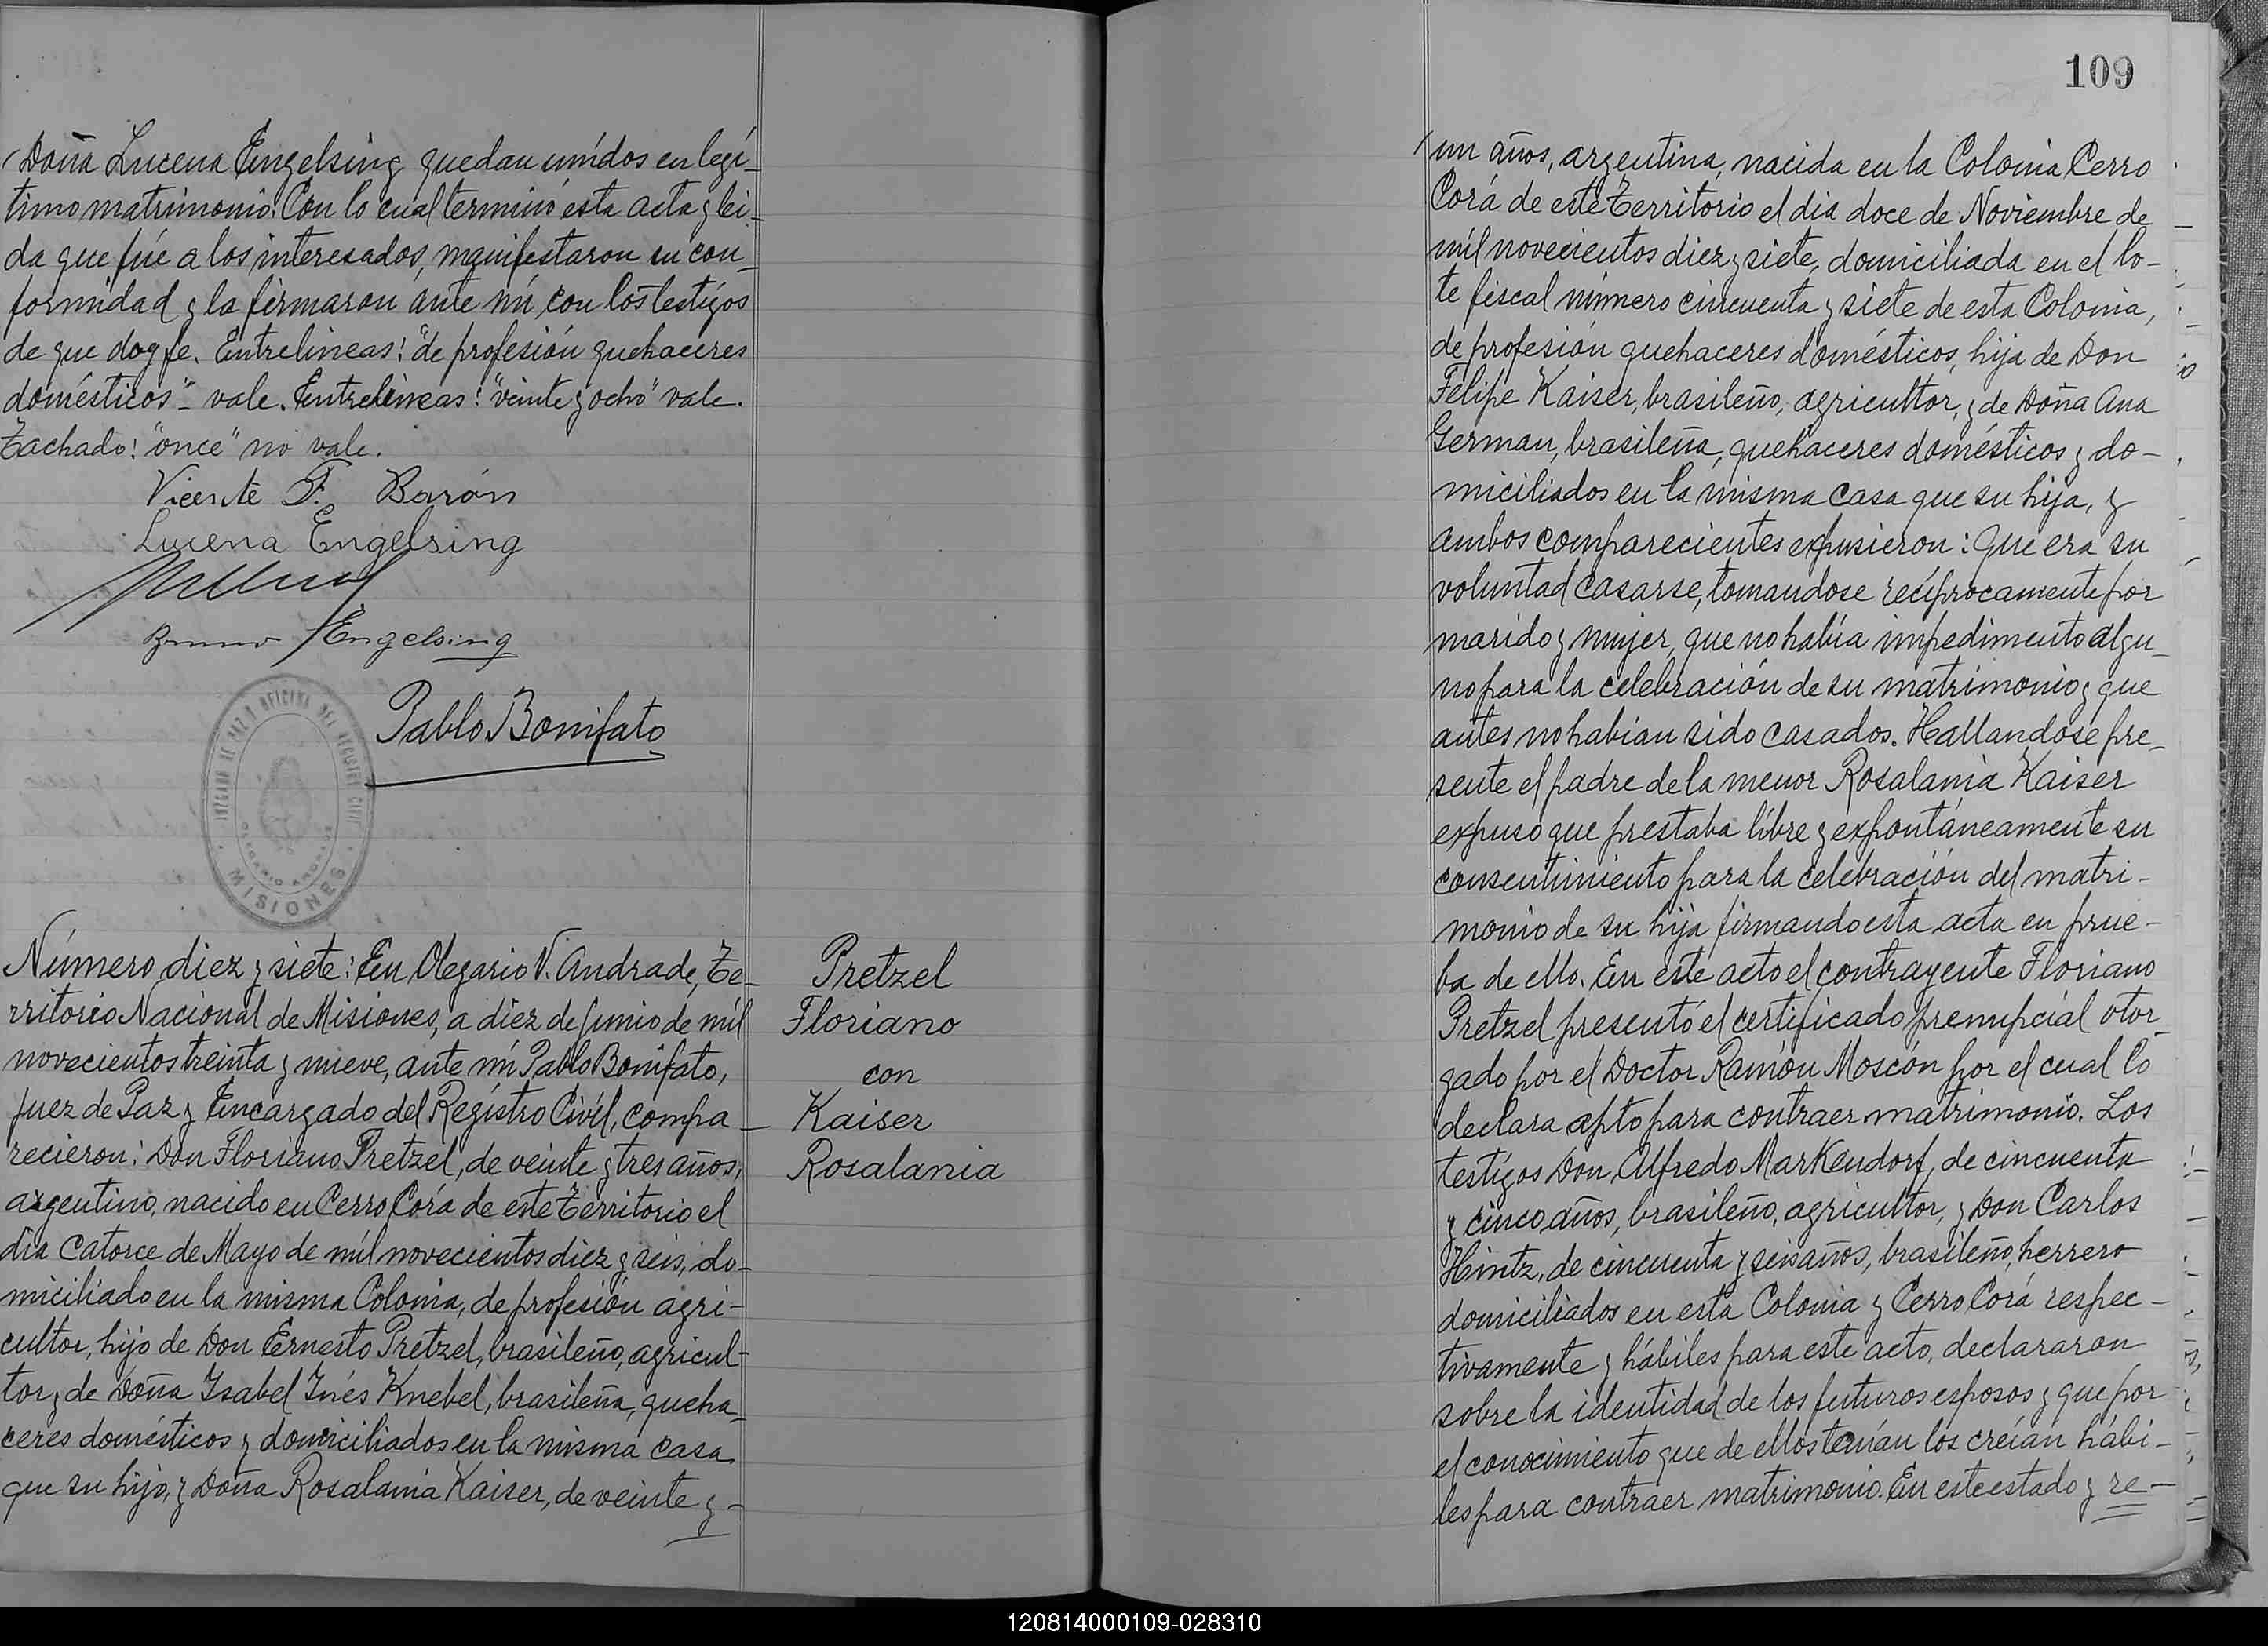 Doña Lucena Engelsing quedan unídos en legí-
timo matrimonio. Con lo cual terminó esta acta y leí-
da que fúe a los interesados, manifestaron su con-
formidad y la firmaron ante mí con los testigos
de que doy fe. Entrelineas: "de profesión quehaceres
domésticos" - vale. Entrelineas: "veinte y ocho" vale.
Tachado: "once" no vale.
Vicente F. Barón
Lucena Engelsing
Bruno Engelsing
Pablo Bonifato
JUZGADO DE PAZ Y OFICINA DEL REGISTRO CIVIL
MISIONES
Número diez y siete: En Olegario V. Andrade, Te-
rritorio Nacional de Misiones, a diez de junio de mil
novecientos treinta y nueve, ante mí Pablo Bonifato,
juez de Paz y Encargado del Regístro Civíl, compa-
recieron: Don Floriano Pretzel, de veinte y tres años,
argentino, nacido en Cerro Corá de este Territorio el
día Catorce de Mayo de míl novecientos diez y seis, do-
miciliado en la misma Colonia, de profesión agri-
cultor, hijo de Don Ernesto Pretzel, brasileño, agricul-
tor y de Doña Isabel Inés Knebel, brasileña, queha-
ceres domésticos y domiciliados en la misma casa
que su hijo, y Doña Rosalania Kaiser, de veinte y-
Pretzel
Floriano
con
Kaiser
Rosalania
109
un años, argentina, nacida en la Colonia Cerro
Corá de este Territorio el dia doce de Noviembre de
míl novecientos diez y siete, domiciliada en el lo-
te fiscal número cincuenta y siete de esta Colonia,
de profesión quehaceres domésticos, hija de Don
Felipe Kaiser, brasileño, agricultor, y de Doña Ana
German, brasileña, quehaceres domésticos y do-
miciliados en la misma casa que su hija, y
ambos comparecientes expusieron: Que era su
voluntad casarse, tomandose recíprocamente por
marido y mujer, que no había impedimento algu-
no para la celebración de su matrimonio y que
antes no habian sido casados. Hallandose pre-
sente el padre de la menor Rosalania Kaiser
expuso que prestaba líbre y expontáneamente su
consentimiento para la celebración del matri-
monio de su hija firmando esta acta en prue-
ba de ello. En este acto el contrayente Floriano
Pretzel presentó el certificado prenupcial otor-
gado por el Doctor Ramón Moscón por el cual lo
declara apto para contraer matrimonio. Los
testígos Don Alfredo Markendorf, de cincuenta
y cinco años, brasileño, agricultor, y Don Carlos
Hintz, de cincuenta y seis años, brasileño, herrero
domiciliados en esta Colonia y Cerro Corá respec-
tivamente y hábiles para este acto, declararon
sobre la identidad de los futuros esposos y que por
el conocimiento que de ellos tenían los creían hábi-
les para contraer matrimonio. En este estado y re-
120814000109-028310